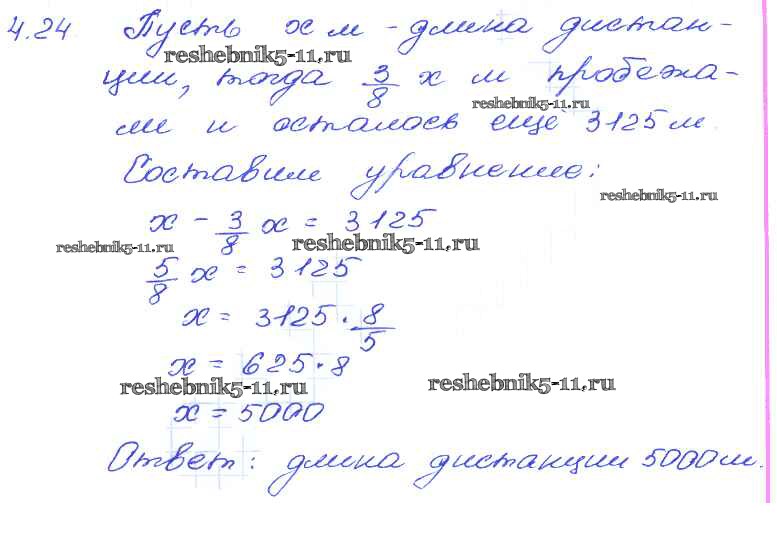 4.24. Пусть x м - длина дистан-
reshebnik5-11.ru
ции, тогда 3/8 x м пробежа-
reshebnik5-11.ru
ли и осталось ещё 3125 м.
Составим уравнение:
reshebnik5-11.ru
x - 3/8 x = 3125
reshebnik5-11.ru reshebnik5-11.ru
5/8 x = 3125
x = 3125 · 8/5
x = 625 · 8
reshebnik5-11.ru reshebnik5-11.ru
x = 5000
Ответ: длина дистанции 5000 м.